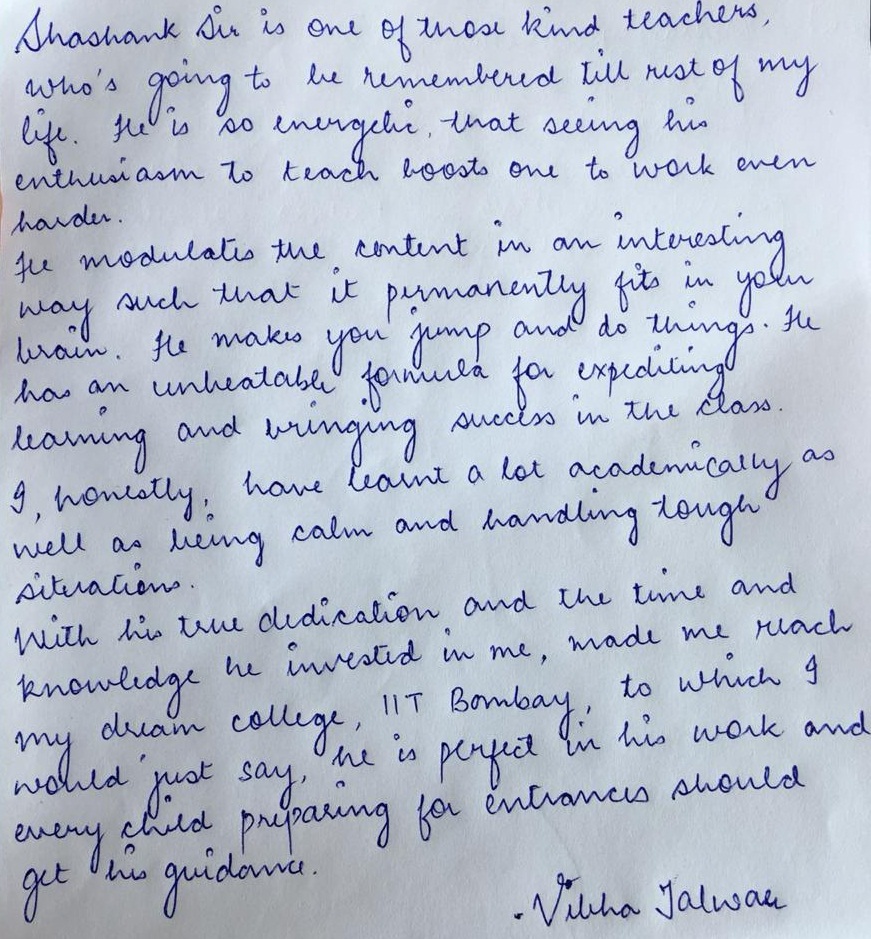 Shashank Sir is one of those kind teachers,
who's going to be remembered till rest of my
life. He is so energetic, that seeing his
enthusiasm to teach boosts one to work even
harder.
He modulates the content in an interesting
way such that it permanently fits in your
brain. He makes you jump and do things. He
has an unbeatable formula for expediting
learning and bringing success in the class.
I, honestly, have learnt a lot academically as
well as being calm and handling tough
situations.
With his true dedication and the time and
knowledge he invested in me, made me reach
my dream college, IIT Bombay, to which I
would just say, he is perfect in his work and
every child preparing for entrances should
get his guidance.
- Vibha